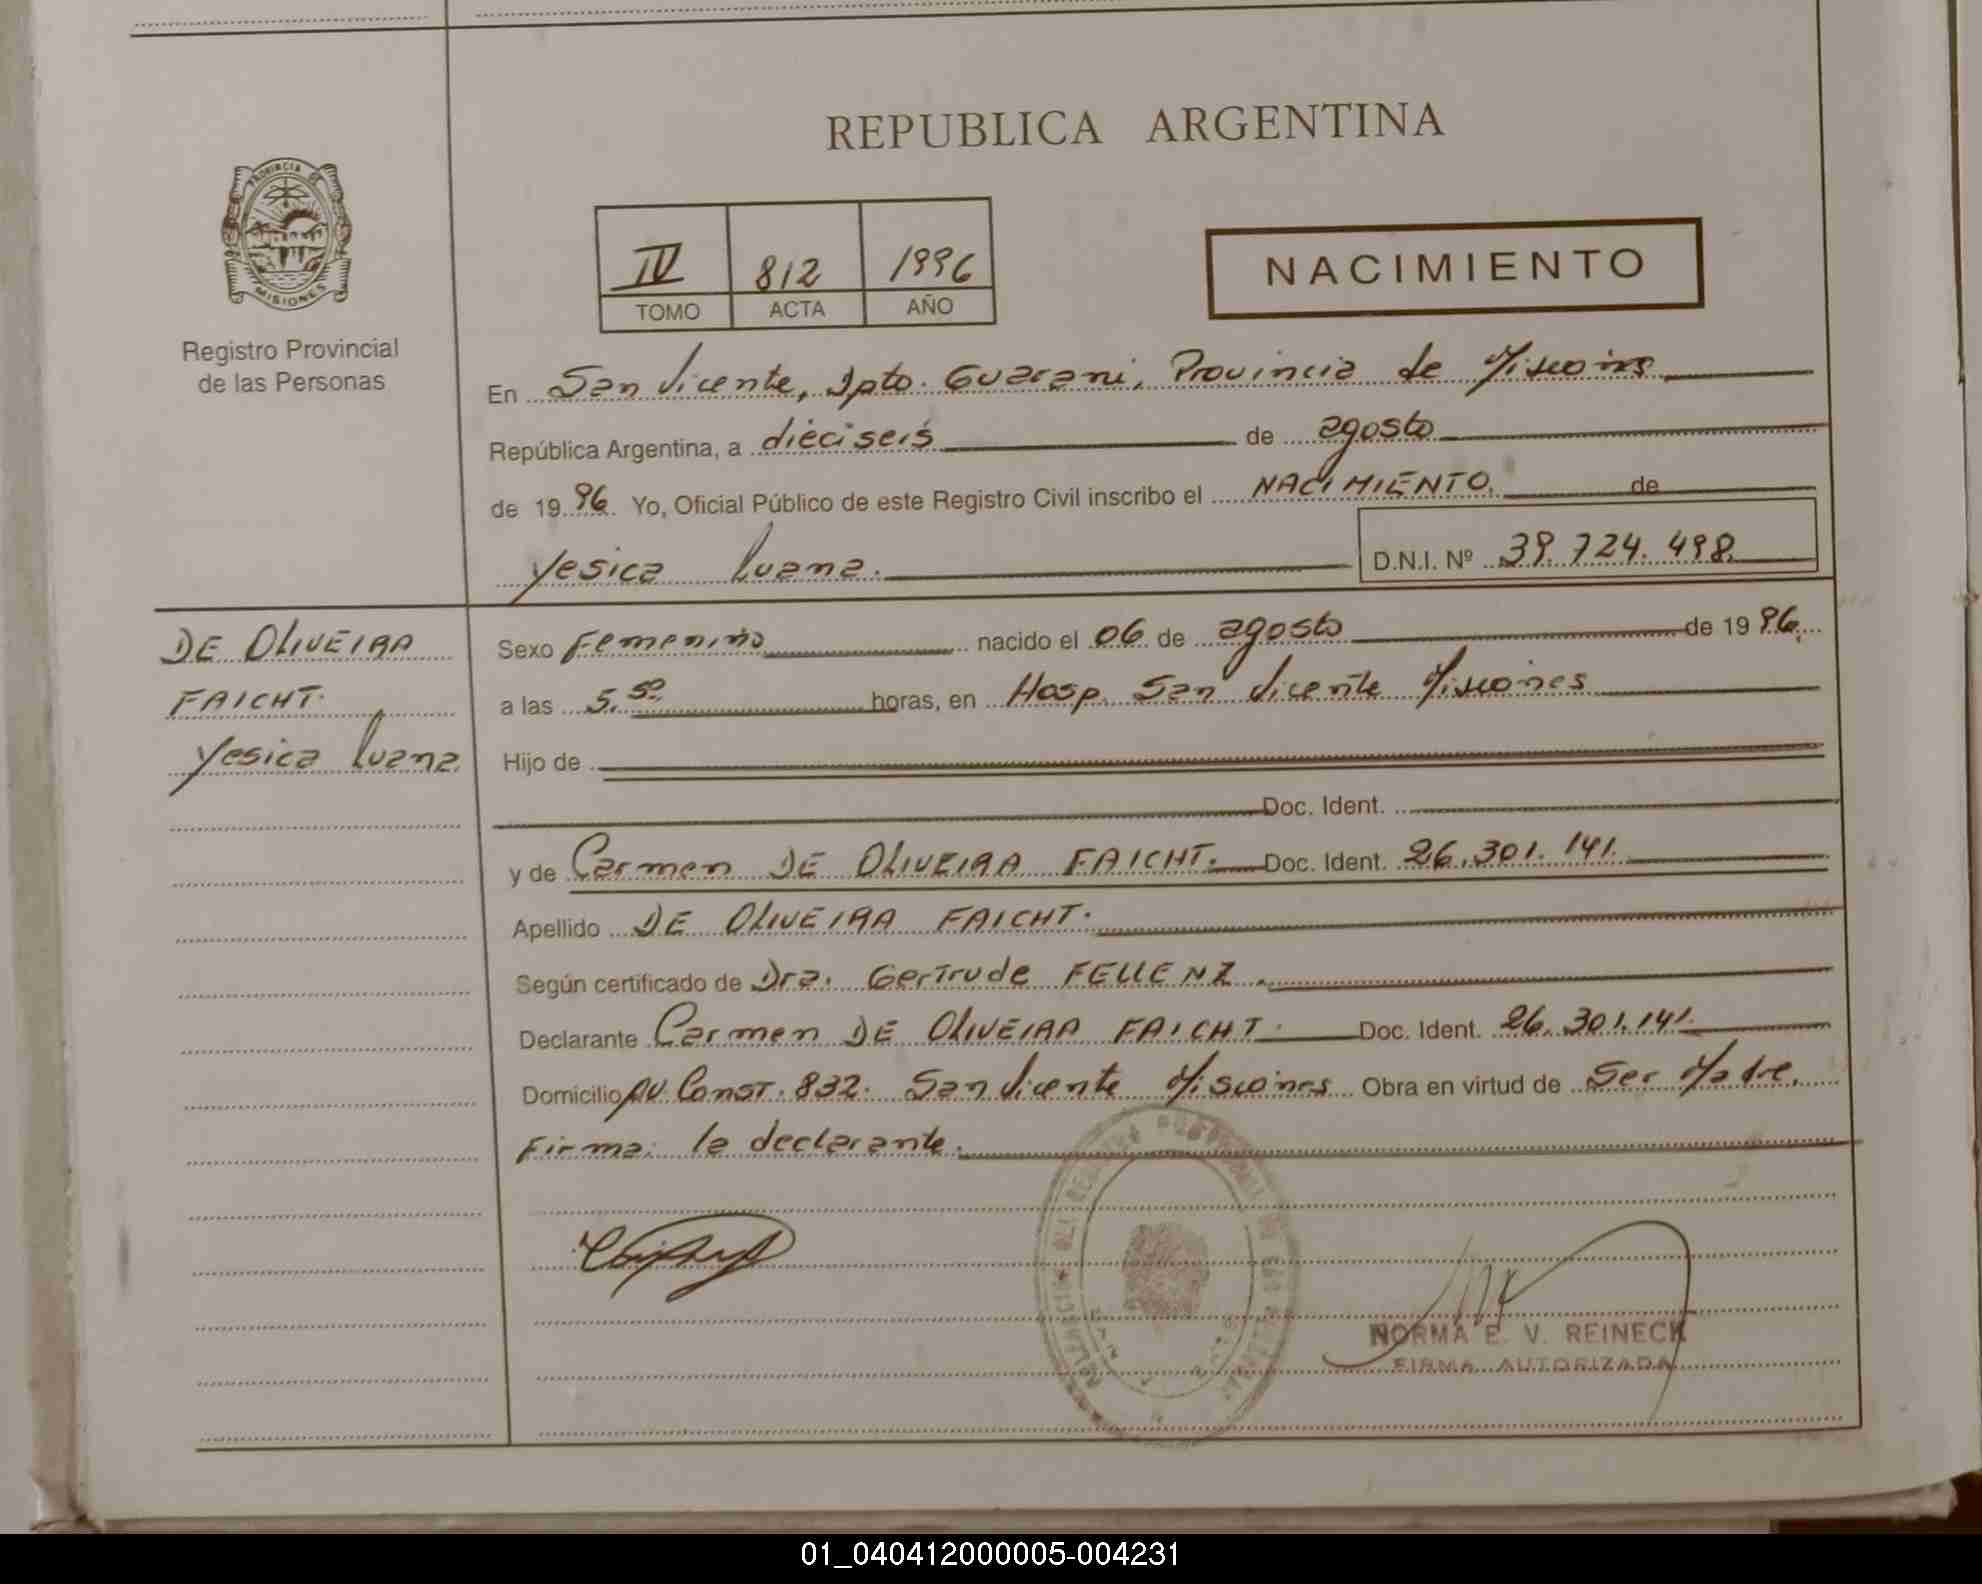 REPUBLICA ARGENTINA
PROVINCIA DE
MISIONES
Registro Provincial
de las Personas
IV 812 1996
TOMO ACTA AÑO
NACIMIENTO
En San Vicente, Dpto. Guarani, Provincia de Misiones
República Argentina, a dieciseis de agosto
de 1996 Yo, Oficial Público de este Registro Civil inscribo el NACIMIENTO, de
Yesica Luana. D.N.I. Nº 39.724.498.
DE OLIVEIRA
FAICHT.
Yesica Luana.
Sexo Femenino nacido el 06 de agosto de 1996,
a las 5.50 horas, en Hosp. San Vicente Misiones
Hijo de
Doc. Ident.
y de Carmen DE OLIVEIRA FAICHT. Doc. Ident. 26.301.141.
Apellido DE OLIVEIRA FAICHT.
Según certificado de Dra. Gertrude FELLENZ.
Declarante Carmen DE OLIVEIRA FAICHT. Doc. Ident. 26.301.141.
Domicilio AV. Const. 832. San Vicente Misiones Obra en virtud de Ser Madre.
Firma: la declarante.
NORMA E. V. REINECK
FIRMA AUTORIZADA
01_040412000005-004231